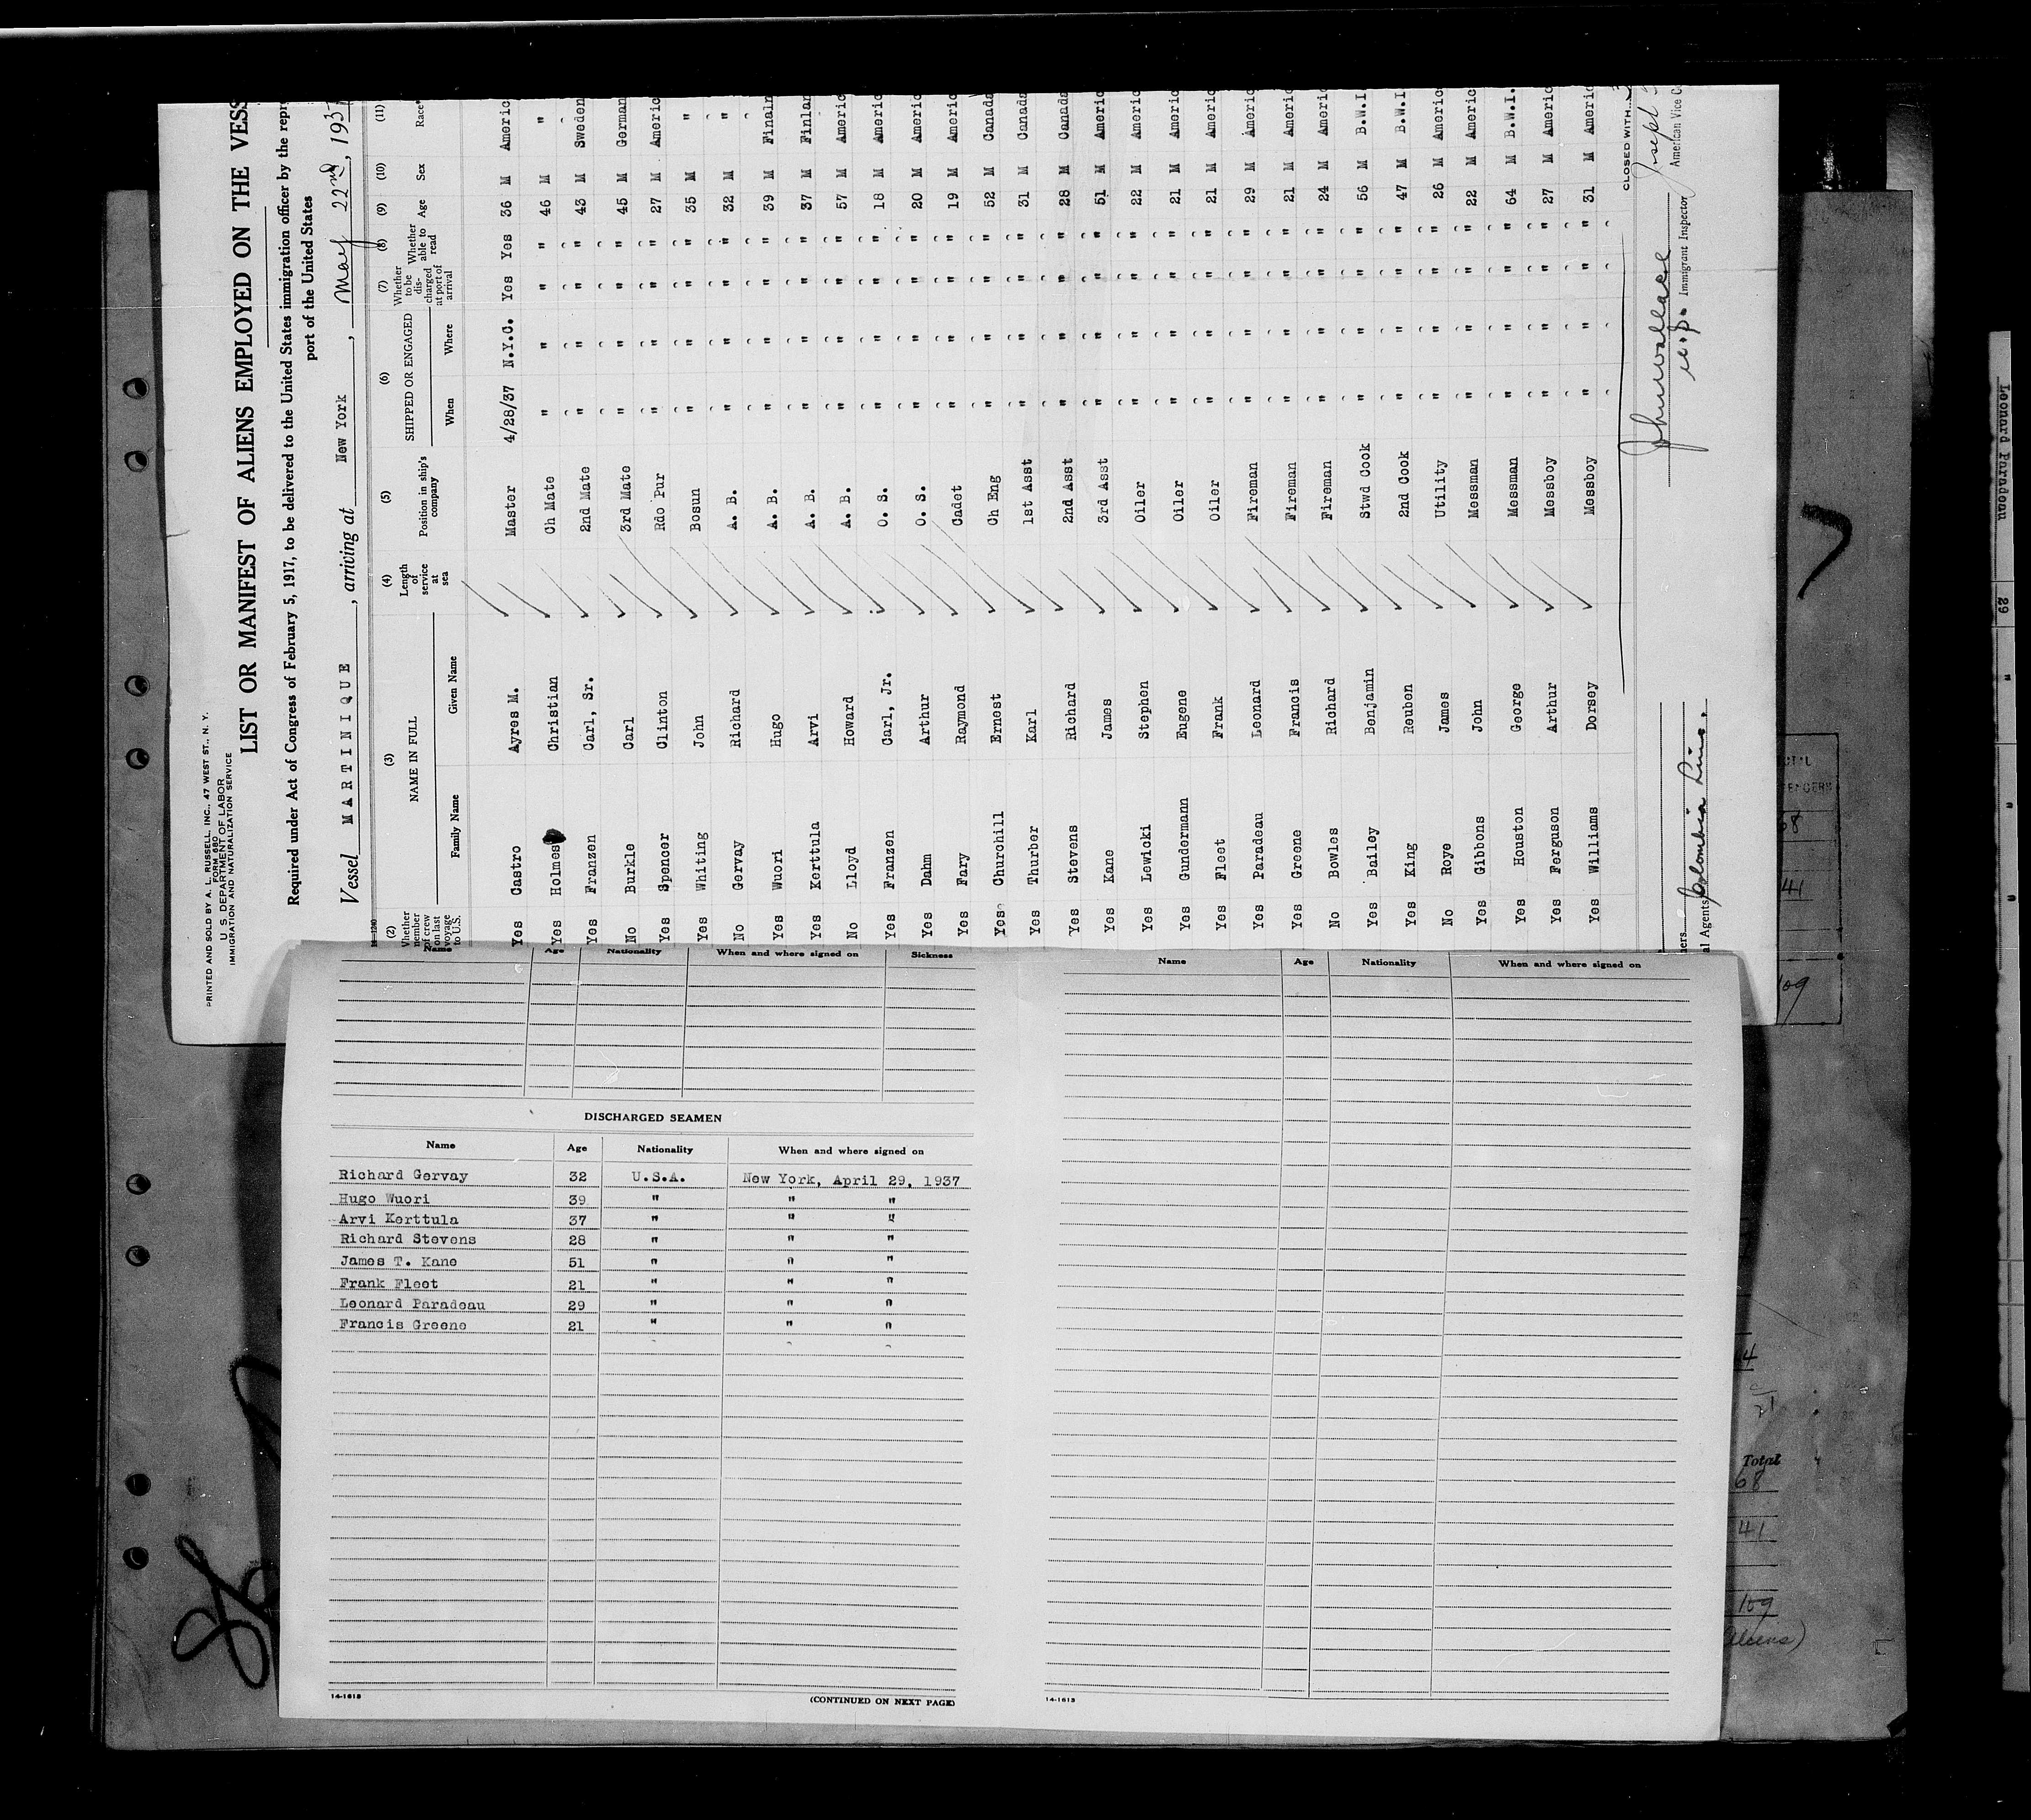 PRINTED AND SOLD BY A. L. RUSSELL, INC., 47 WEST ST., N. Y.
FORM 680
U. S. DEPARTMENT OF LABOR
IMMIGRATION AND NATURALIZATION SERVICE
LIST OR MANIFEST OF ALIENS EMPLOYED ON THE VESS
Required under Act of Congress of February 5, 1917, to be delivered to the United States immigration officer by the repr
port of the United States
Vessel MARTINIQUE, arriving at New York, May 22nd, 1937
(2) (3) (4) (5) (6) (7) (8) (9) (10) (11)
Whether member of crew on last voyage to U.S. NAME IN FULL Family Name Given Name Length of service at sea Position in ship's company SHIPPED OR ENGAGED When Where Whether to be discharged at port of arrival Whether able to read Age Sex Race*
Yes Castro Ayres M. Master 4/28/37 N.Y.C. Yes Yes 36 M Americ
Yes Holmes Christian Ch Mate " " " " 46 M "
Yes Franzen Carl, Sr. 2nd Mate " " " " 43 M Sweden
No Burkle Carl 3rd Mate " " " " 45 M German
Yes Spencer Clinton Rdo Pur " " " " 27 M Americ
Yes Whiting John Bosun " " " " 35 M "
No Gervay Richard A. B. " " " " 32 M "
Yes Wuori Hugo A. B. " " " " 39 M Finaln
Yes Kerttula Arvi A. B. " " " " 37 M Finlan
No Lloyd Howard A. B. " " " " 57 M Americ
Yes Franzen Carl, Jr. O. S. " " " " 18 M Americ
Yes Dahm Arthur O. S. " " " " 20 M Americ
Yes Fary Raymond Cadet " " " " 19 M Americ
Yes Churchill Ernest Ch Eng " " " " 52 M Canada
Yes Thurber Karl 1st Asst " " " " 31 M Canada
Yes Stevens Richard 2nd Asst " " " " 28 M Canada
Yes Kane James 3rd Asst " " " " 51 M Americ
Yes Lewicki Stephen Oiler " " " " 22 M Americ
Yes Gundermann Eugene Oiler " " " " 21 M Americ
Yes Fleet Frank Oiler " " " " 21 M Americ
Yes Paradeau Leonard Fireman " " " " 29 M Americ
Yes Greene Francis Fireman " " " " 21 M Americ
No Bowles Richard Fireman " " " " 24 M Americ
Yes Bailey Benjamin Stwd Cook " " " " 56 M B.W.I
Yes King Reuben 2nd Cook " " " " 47 M B.W.I
No Roye James Utility " " " " 26 M Americ
Yes Gibbons John Messman " " " " 22 M Americ
Yes Houston George Messman " " " " 64 M B.W.I.
Yes Ferguson Arthur Messboy " " " " 27 M Americ
Yes Williams Dorsey Messboy " " " " 31 M Americ
CLOSED WITH
John Wallace
Immigrant Inspector
Joseph
American Vice Co
ners
al Agents Colombia Line.
Name Age Nationality When and where signed on Sickness
DISCHARGED SEAMEN
Name Age Nationality When and where signed on
Richard Gervay 32 U.S.A. New York, April 29, 1937
Hugo Wuori 39 " " "
Arvi Kerttula 37 " " "
Richard Stevens 28 " " "
James T. Kane 51 " " "
Frank Fleet 21 " " "
Leonard Paradeau 29 " " "
Francis Greene 21 " " "
14-1613
(CONTINUED ON NEXT PAGE)
Name Age Nationality When and where signed on
14-1613
68
41
109
44
21
Total
68
41
109
Aliens)
Leonard Paradeau 29